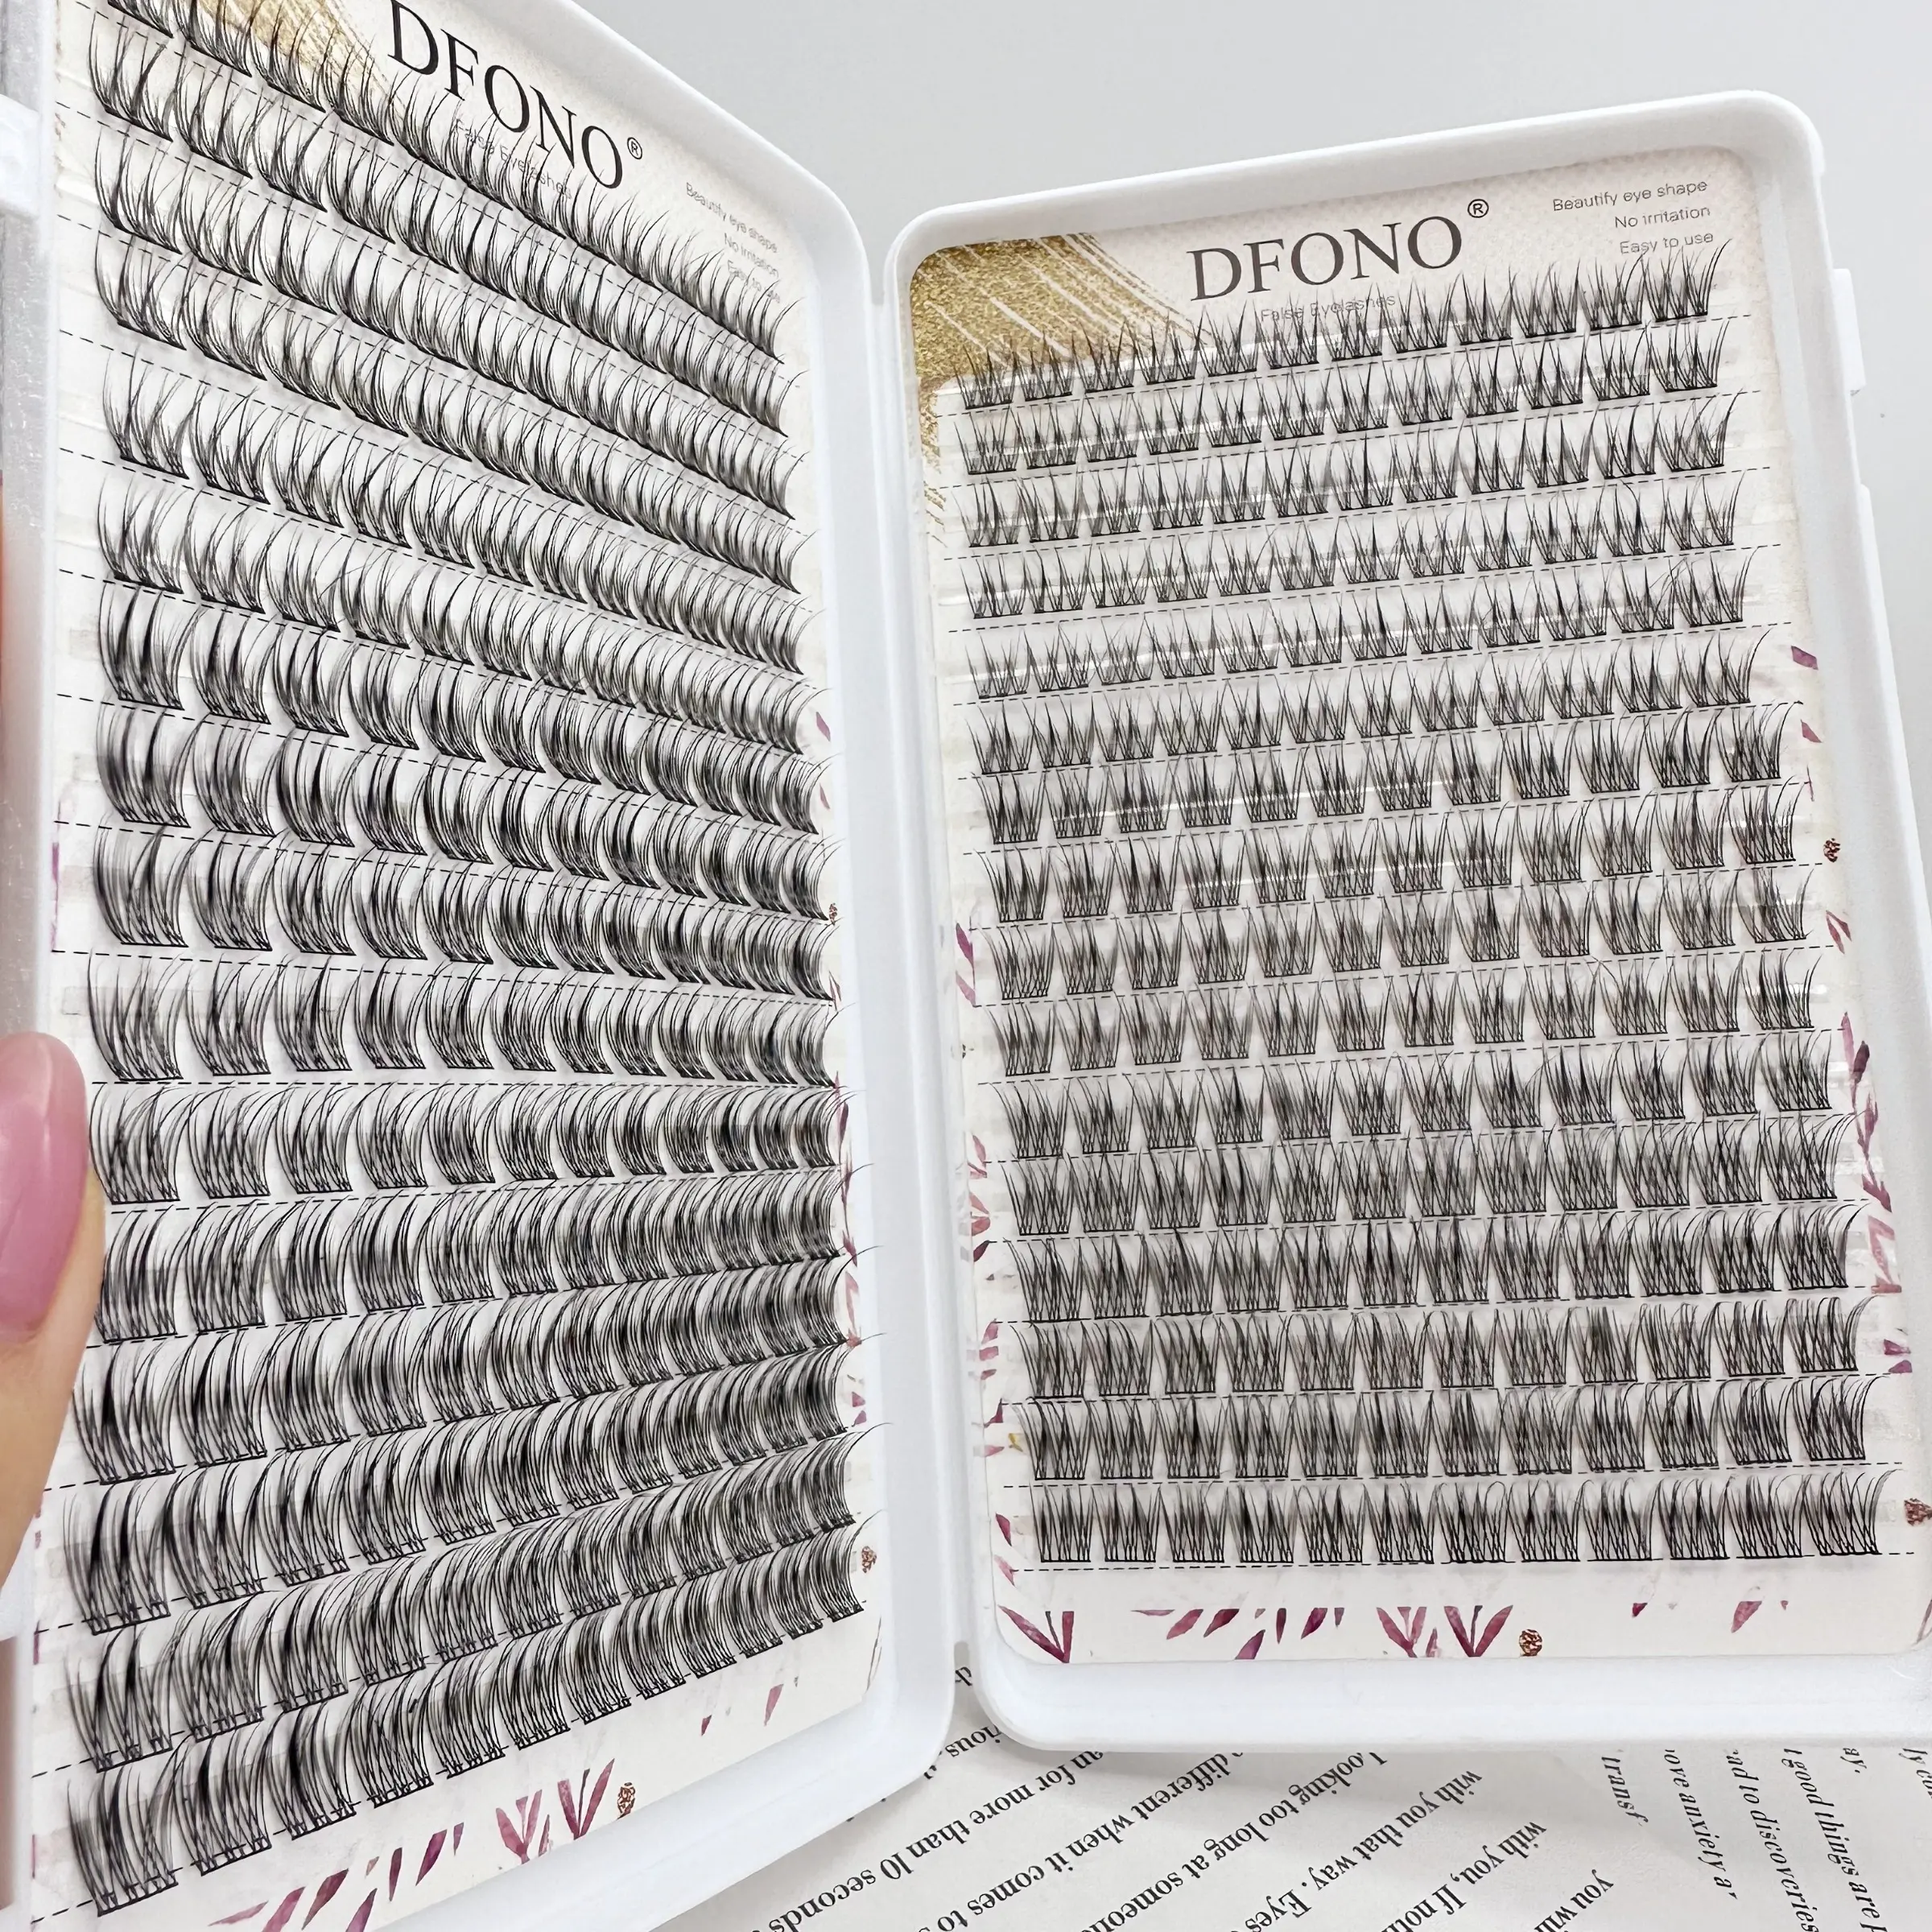 DFONO®
False Eyelashes
Beautify eye shape
No irritation
Easy to use
DFONO®
False Eyelashes
Beautify eye shape
No irritation
Easy to use
an for more than 10 seconds
different when it comes to
Looking too long at someone
with you that way. Eyes
with you, If
you
transf
ove anxiety a
ad to discoveries
good things are
ay,